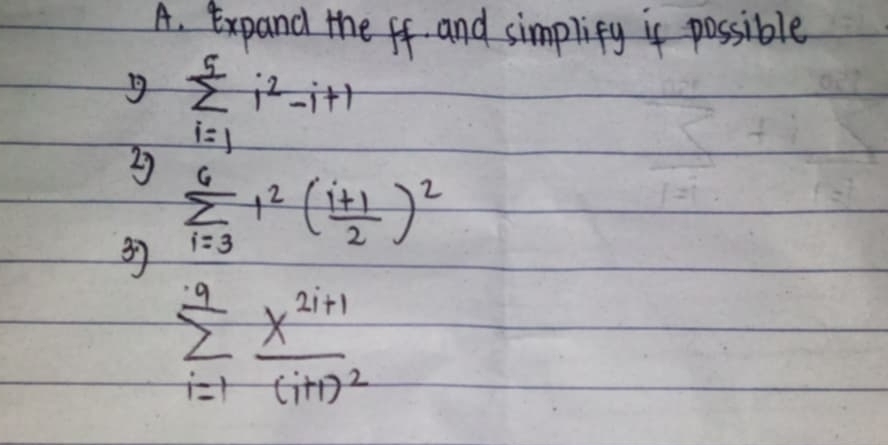 A. Expand the ff. and simplify if possible
1) 5 Σ i=1 i² - i + 1
2) 6 Σ i=3 i² (i+1 / 2)²
3) 9 Σ i=1 x^(2i+1) / (i+1)²